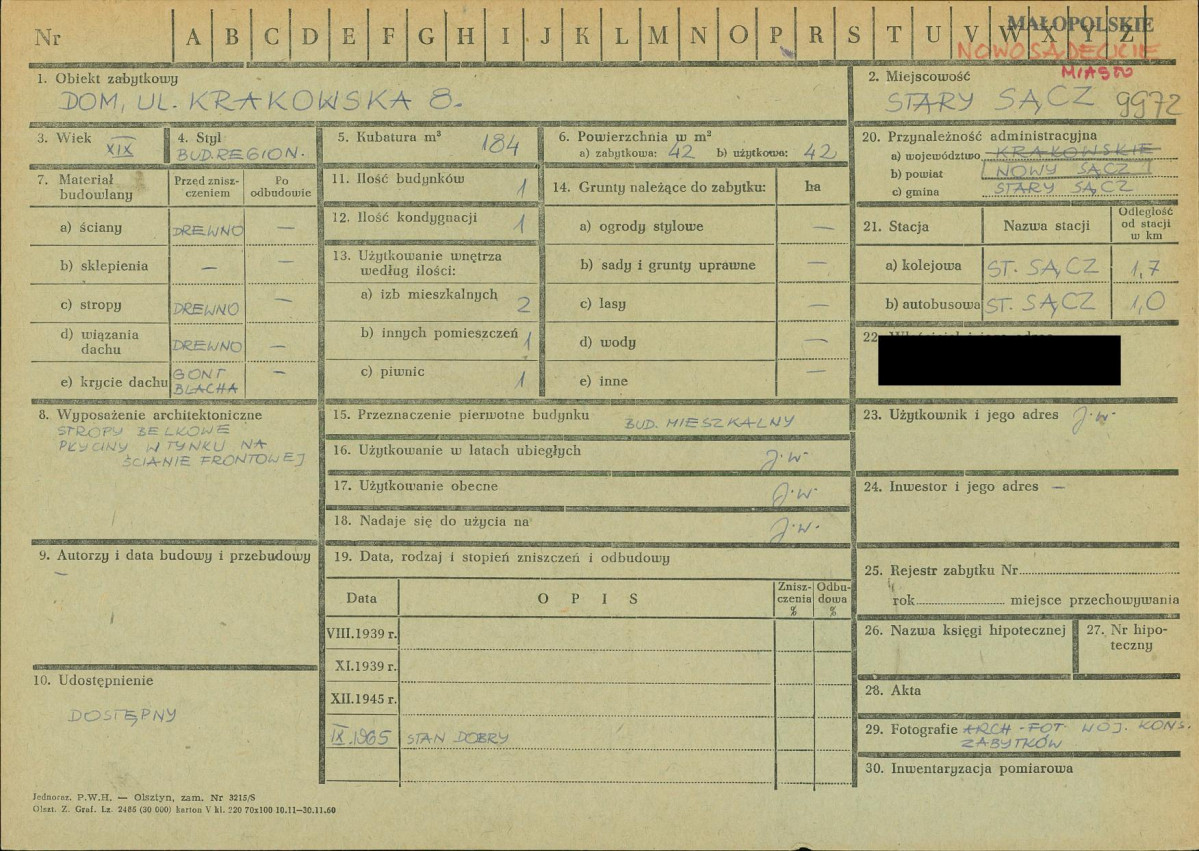 Nr A B C D E F G H I J K L M N O P R S T U V W X Y Z
MAŁOPOLSKIE
NOWOSĄDECKIE
MIASTO
1. Obiekt zabytkowy
DOM, UL. KRAKOWSKA 8.
2. Miejscowość
STARY SĄCZ 9972
3. Wiek
XIX
4. Styl
BUD. REGION.
5. Kubatura m³ 184
6. Powierzchnia w m²
a) zabytkowa: 42 b) użytkowa: 42
20. Przynależność administracyjna
a) województwo KRAKOWSKIE
b) powiat NOWY SĄCZ
c) gmina STARY SĄCZ
7. Materiał budowlany
Przed znisz-
czeniem
Po
odbudowie
a) ściany DREWNO —
b) sklepienia — —
c) stropy DREWNO —
d) wiązania
dachu DREWNO —
e) krycie dachu GONT —
BLACHA
11. Ilość budynków 1
12. Ilość kondygnacji 1
13. Użytkowanie wnętrza
według ilości:
a) izb mieszkalnych 2
b) innych pomieszczeń 1
c) piwnic 1
14. Grunty należące do zabytku: ha
a) ogrody stylowe —
b) sady i grunty uprawne —
c) lasy —
d) wody —
e) inne —
21. Stacja Nazwa stacji Odległość
od stacji
w km
a) kolejowa ST. SĄCZ 1,7
b) autobusowa ST. SĄCZ 1,0
22.
8. Wyposażenie architektoniczne
STROPY BELKOWE
PŁYCINY W TYNKU NA
ŚCIANIE FRONTOWEJ
15. Przeznaczenie pierwotne budynku BUD. MIESZKALNY
16. Użytkowanie w latach ubiegłych J.W.
17. Użytkowanie obecne J.W.
18. Nadaje się do użycia na J.W.
23. Użytkownik i jego adres J.W.
24. Inwestor i jego adres —
9. Autorzy i data budowy i przebudowy
—
10. Udostępnienie
DOSTĘPNY
19. Data, rodzaj i stopień zniszczeń i odbudowy
Data O P I S Znisz-
czenia
% Odbu-
dowa
%
VIII.1939 r.
XI.1939 r.
XII.1945 r.
IX.1965 STAN DOBRY
25. Rejestr zabytku Nr
rok miejsce przechowywania
26. Nazwa księgi hipotecznej
27. Nr hipo-
teczny
28. Akta
29. Fotografie ARCH. FOT. WOJ. KONS.
ZABYTKÓW
30. Inwentaryzacja pomiarowa
Jednoraz. P.W.H. — Olsztyn, zam. Nr 3215/S
Olszt. Z. Graf. Lz. 2486 (30 000) karton V kl. 220 70x100 10.11—30.11.60